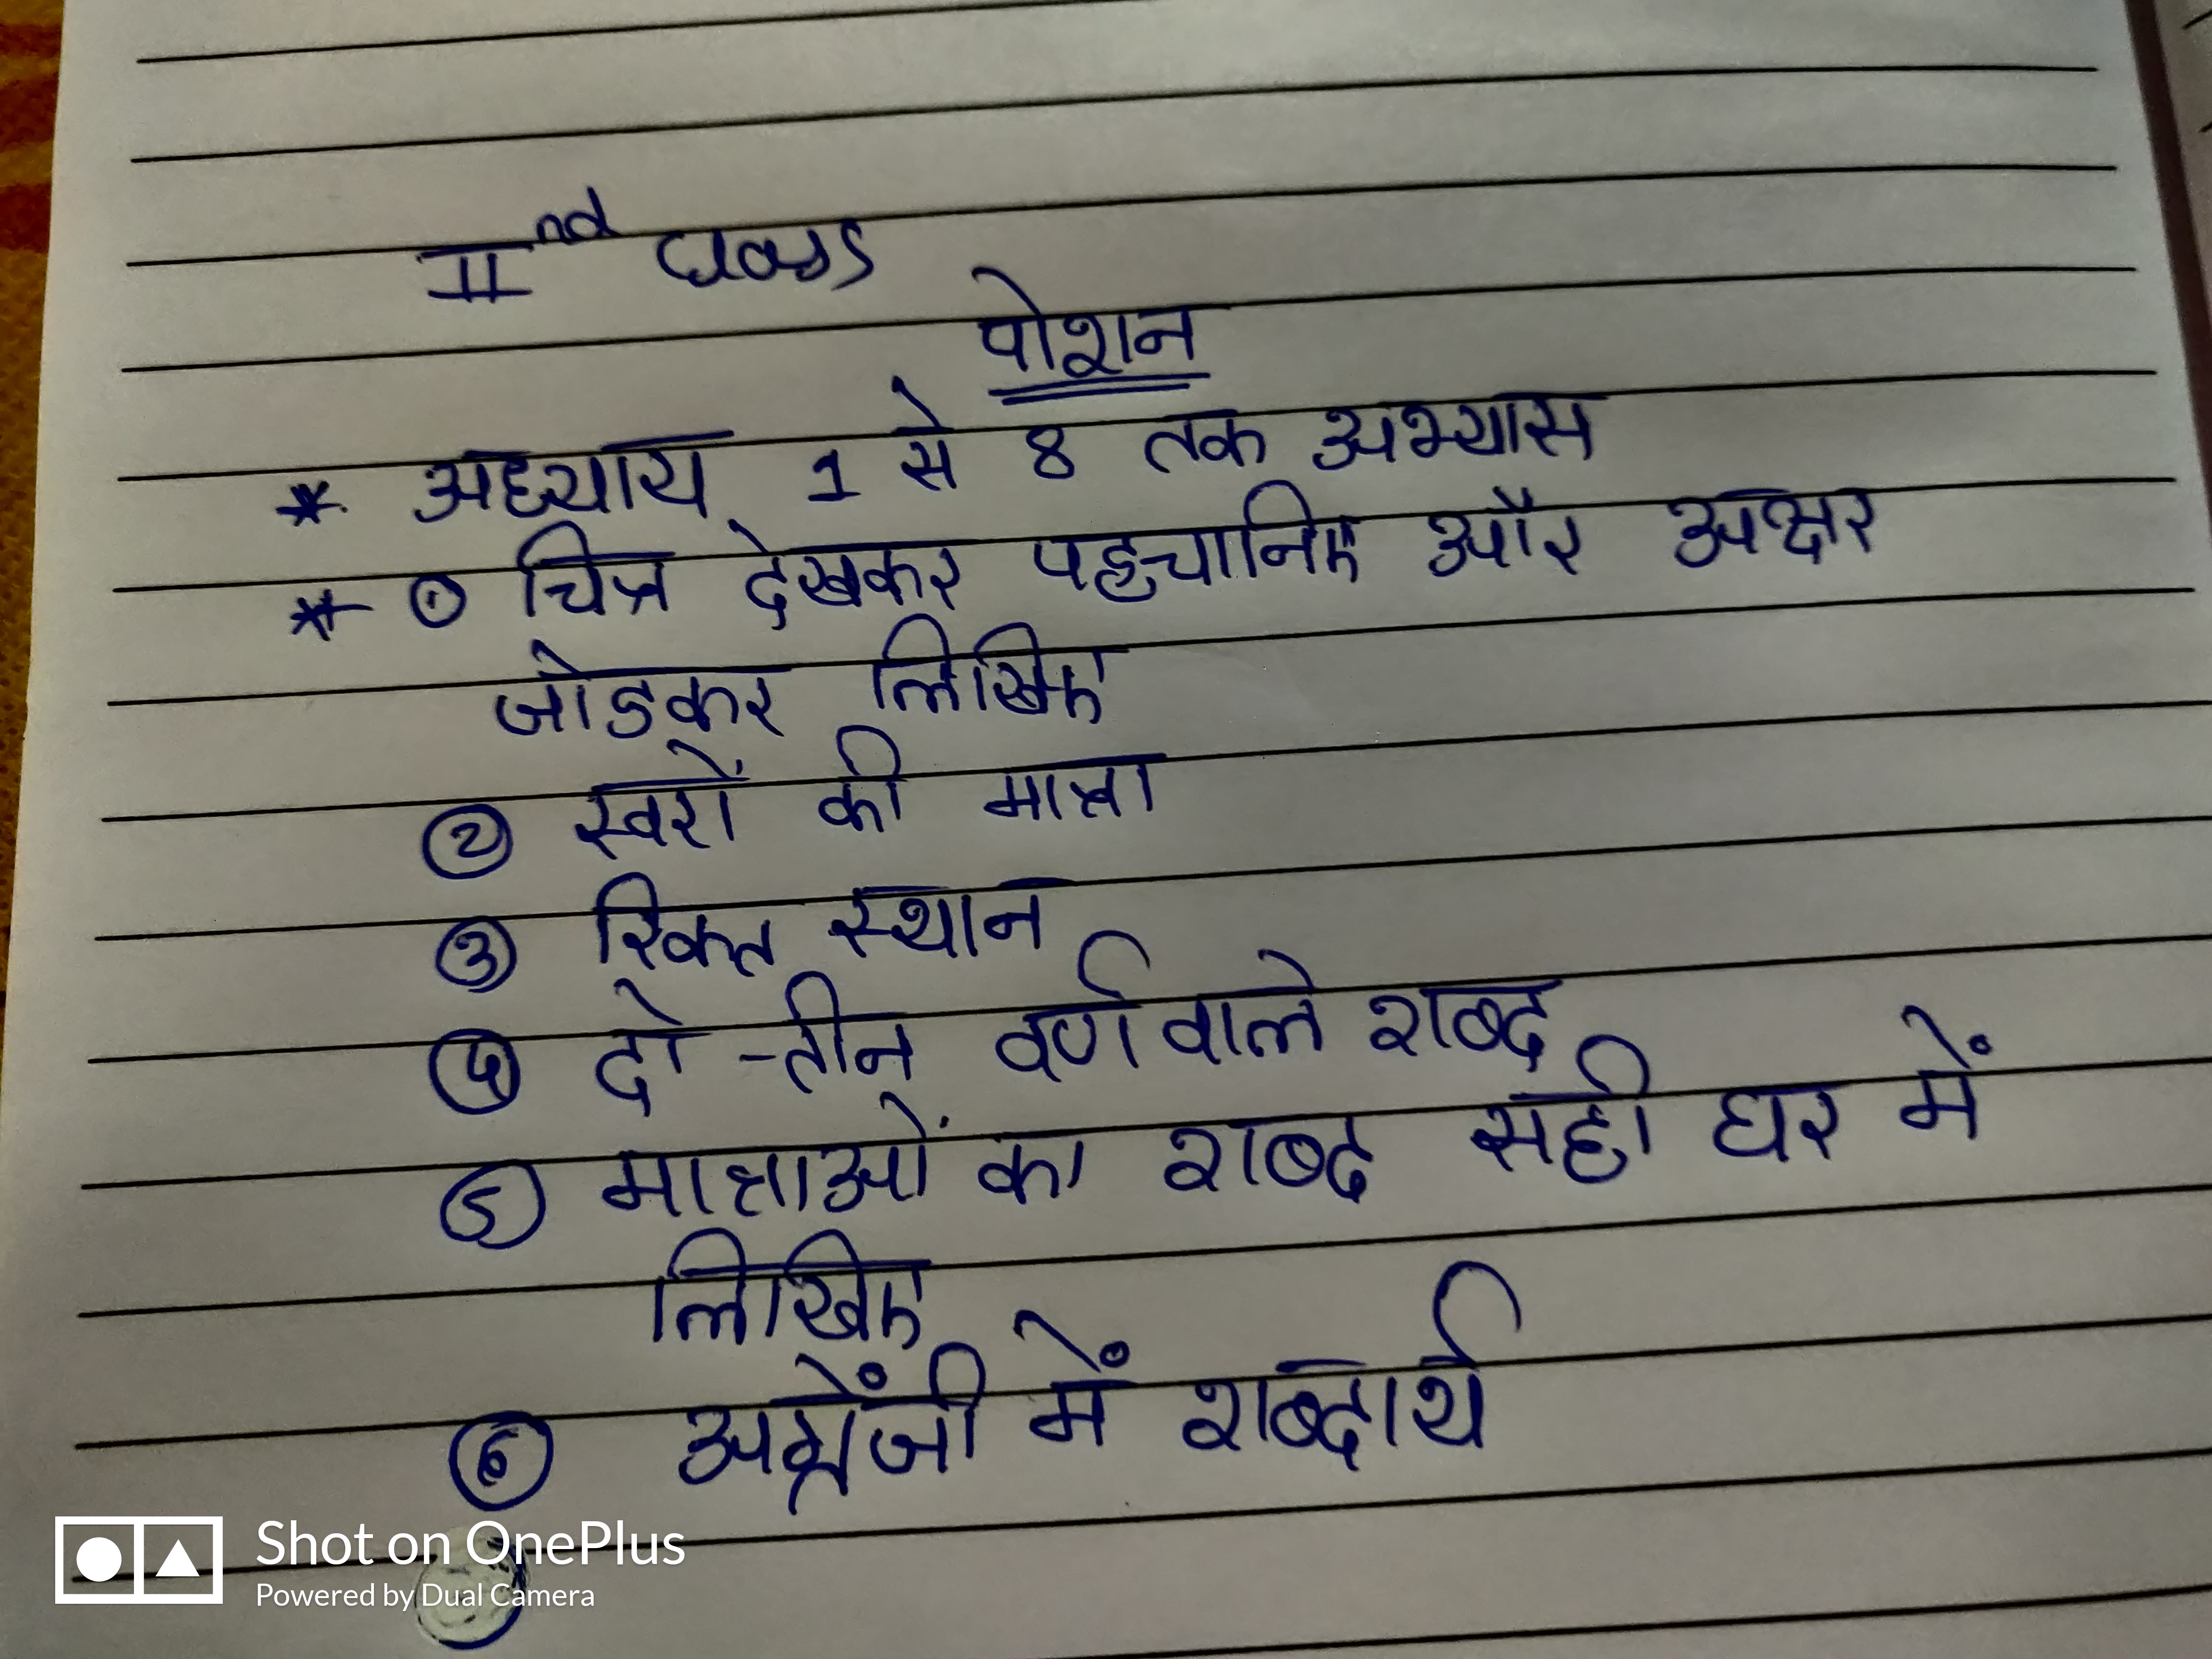 IInd class
पोशन
* अध्याय 1 से 8 तक अभ्यास
* ① चित्र देखकर पहचानिए और अक्षर
जोडकर लिखिए
② स्वरों की मात्रा
③ रिक्त स्थान
④ दो -तीन वर्ण वाले शब्द
⑤ मात्राओं का शब्द सही घर में
लिखिए
⑥ अग्रेंजी में शब्दार्थ
Shot on OnePlus
Powered by Dual Camera